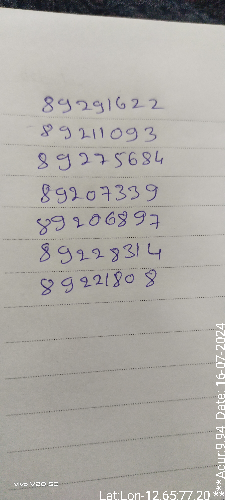 89291622
89211093
89275684
89207339
89206897
89228314
89221808
vivo Y20 SE
Lat:Lon-12.65:77.20
***Acur:9.94 Date: 16-07-2024